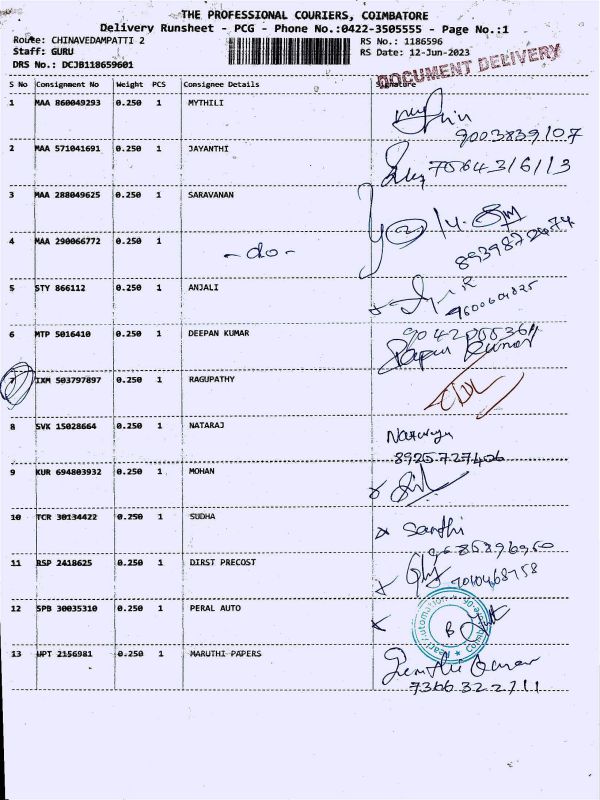 THE PROFESSIONAL COURIERS, COIMBATORE
Delivery Runsheet - PCG - Phone No.:0422-3505555 - Page No.:1
Route: CHINAVEDAMPATTI 2
Staff: GURU
DRS No.: DCJB118659601
RS No.: 1186596
RS Date: 12-Jun-2023
DOCUMENT DELIVERY
S No Consignment No Weight PCS Consignee Details Signature
1 MAA 860049293 0.250 1 MYTHILI
9003839107
2 MAA 571041691 0.250 1 JAYANTHI
3 MAA 288049625 0.250 1 SARAVANAN
4 MAA 290066772 0.250 1 - do -
5 STY 866112 0.250 1 ANJALI
6 MTP 5016410 0.250 1 DEEPAN KUMAR
7 IXM 503797897 0.250 1 RAGUPATHY
8 SVK 15028664 0.250 1 NATARAJ
8925727406
9 KUR 694803932 0.250 1 MOHAN
10 TCR 30134422 0.250 1 SUDHA
Santhi
11 RSP 2418625 0.250 1 DIRST PRECOST
12 SPB 30035310 0.250 1 PERAL AUTO
13 UPT 2156981 0.250 1 MARUTHI PAPERS
7366322711